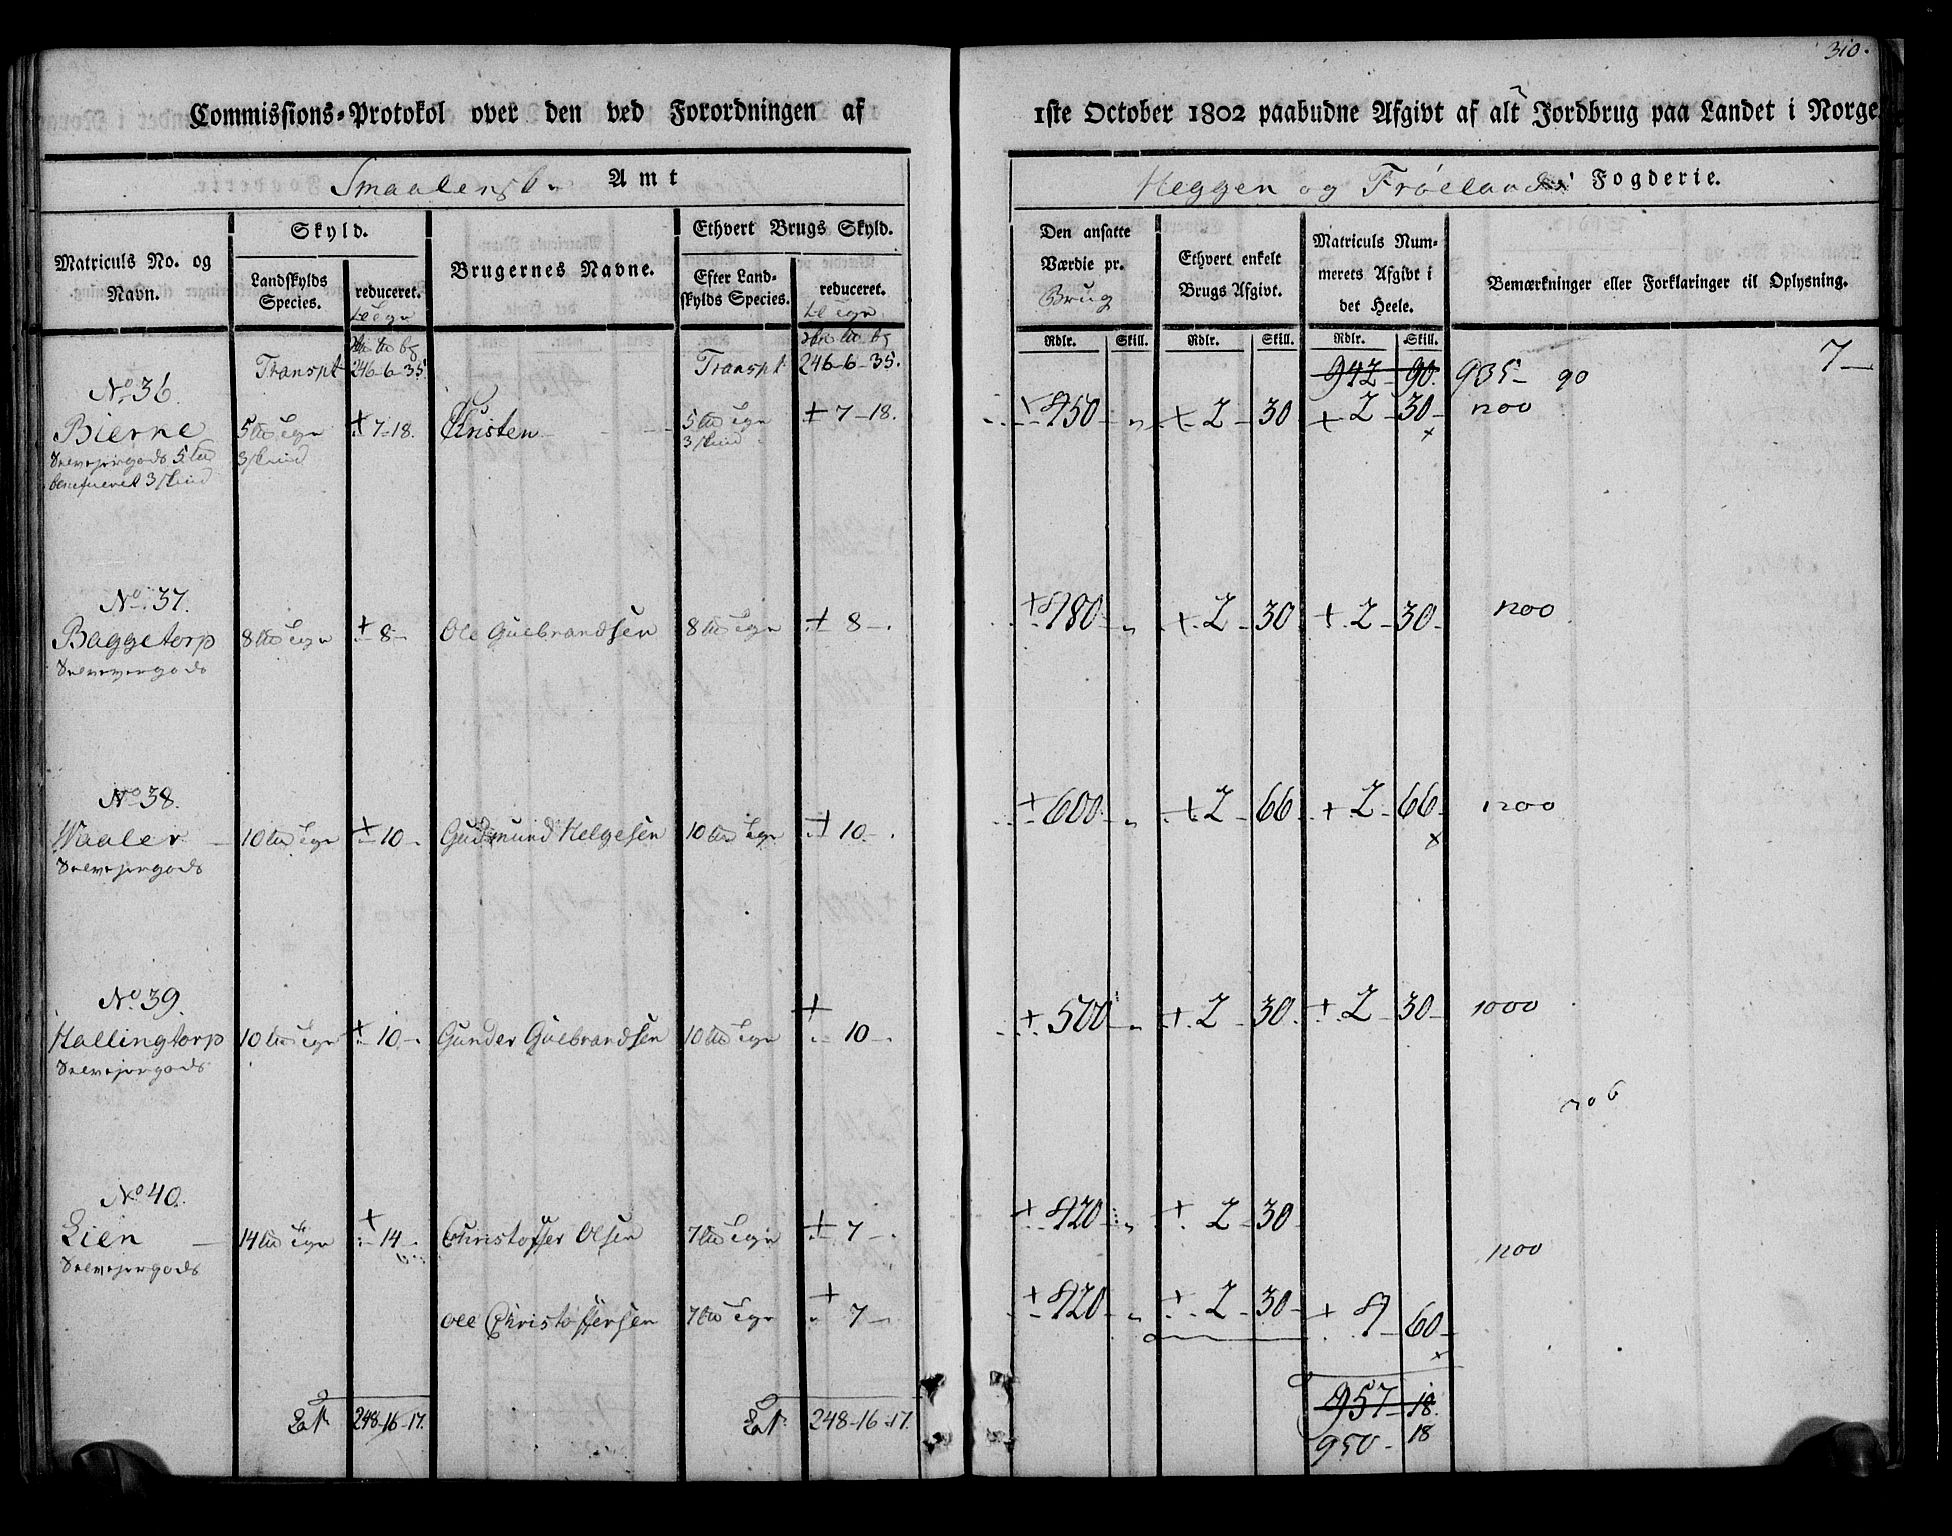 310.
Commissions-Protokol over den ved Forordningen af
1ste October 1802 paabudne Afgivt af alt Jordbrug paa Landet i Norge
Smaalenske Amt
Heggen og Frøelands Fogderie.
Matriculs No. og Navn.
Skyld.
Landskylds Species.
reduceret.
Brugernes Navne.
Ethvert Brugs Skyld.
Efter Landskylds Species.
reduceret.
Den ansatte Værdie pr. Brug
Ethvert enkelt Brugs Afgivt.
Matriculs Nummerets Afgivt i det Heele.
Bemærkninger eller Forklaringer til Oplysning.
Rdlr. Skill. Rdlr. Skill. Rdlr. Skill.
Transpt 246-6-35. Transpt 246-6-35. 942-90. 935- 90 7-
No. 36.
Bierne 5 7-18. Christen 5 7-18. 450 2-30 2-30 1200
Selvejergods 5 3 skind 3 skind
beneficeret 3 skind
No. 37.
Baggetorp 8 8- Ole Gulbrandsen 8 8- 480 2-30 2-30 1200
Selvejergods
No. 38.
Waaler 10 10- Gudmund Helgesen 10 10- 600 2-66 2-66 1200
Selvejergods
No. 39.
Hallingtorp 10 10- Gunder Gulbrandsen 10 10- 500 2-30 2-30 1000
Selvejergods
No. 40.
Lien 14 14- Christoffer Olsen 7 7- 420 2-30
Selvejergods 1200
Ole Christoffersen 7 7- 420 2-30 4-60
Lat. 248-16-17. Lat. 248-16-17. 957-18.
950- 18